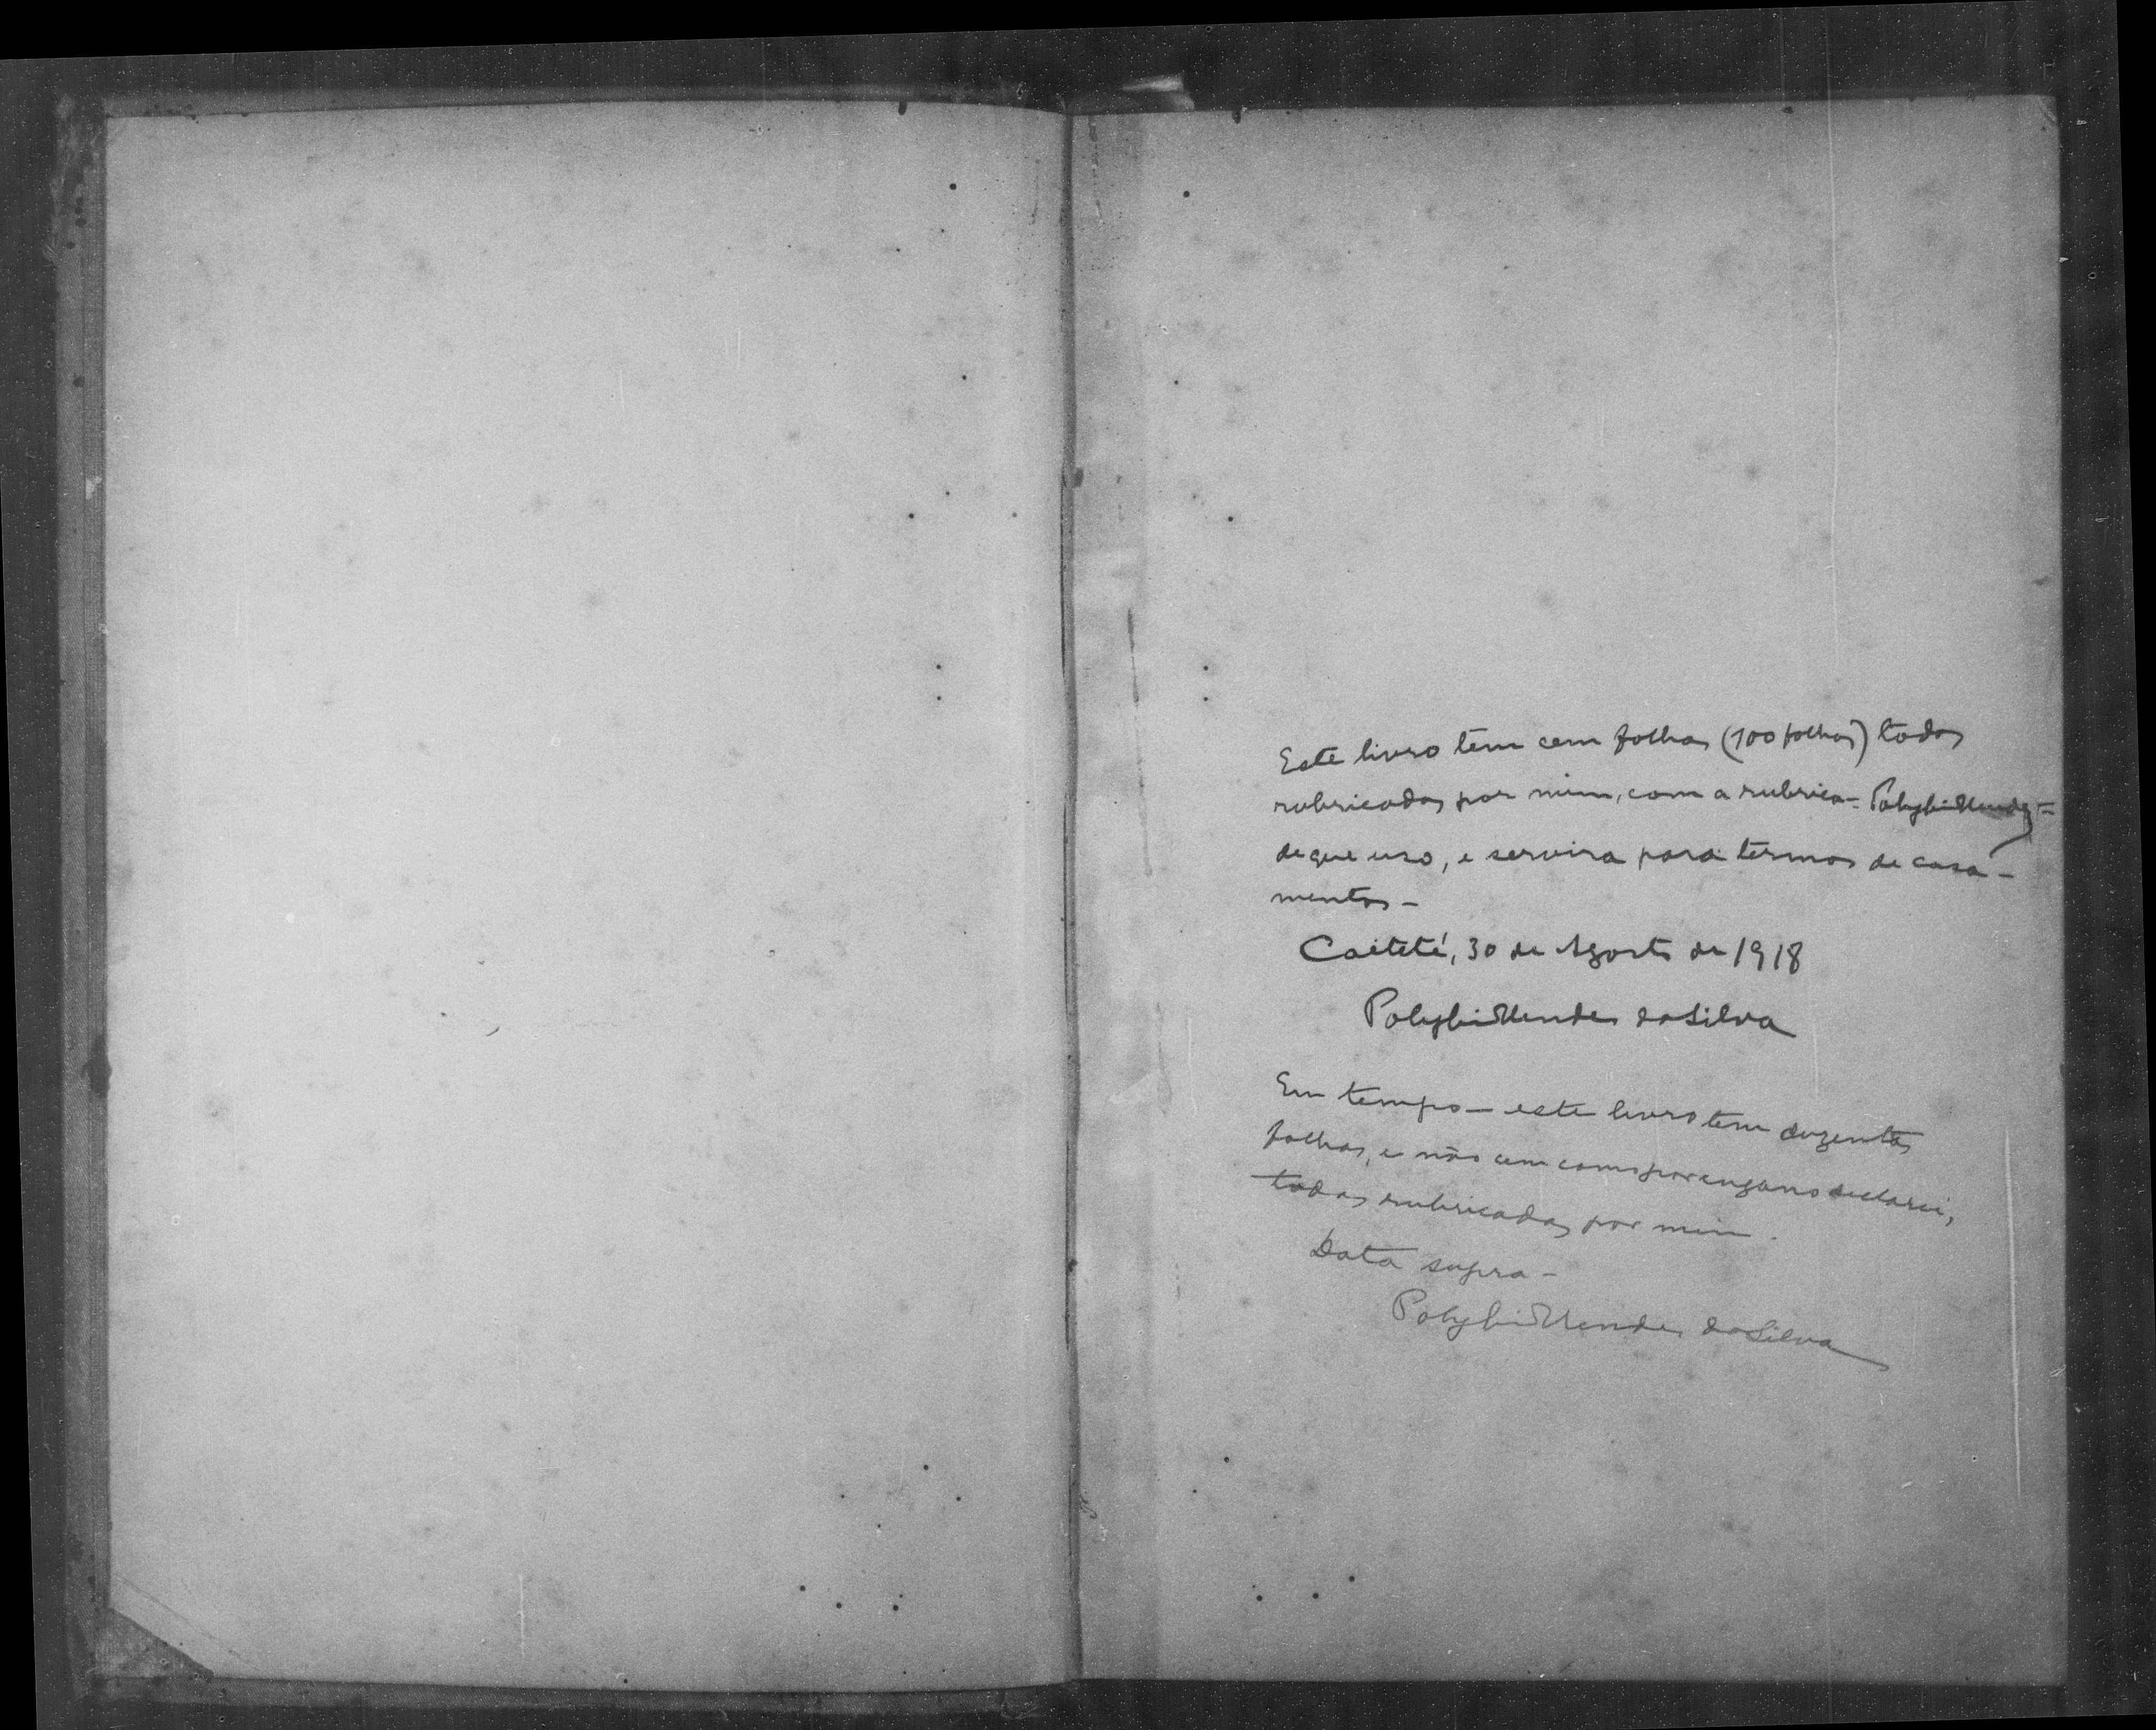 Este livro tem cem folhas (100 folhas) todas
rubricadas por mim, com a rubrica - Polybio Mendes -
de que uso, e servira para termos de casa-
mentos -
Caeteté, 30 de Agosto de 1918
Polybio Mendes da Silva
Em tempo - este livro tem duzentas
folhas, e não cem como por engano declarei,
todas rubricadas por mim.
Data supra -
Polybio Mendes da Silva